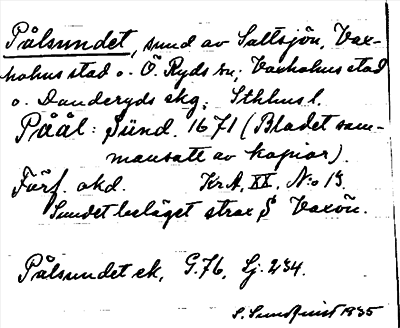 Pålsundet, sund av Saltsjön, Vax-
holms stad o. Ö. Ryds sn; Vaxholms stad
o. Danderyds skg; Sthlms l.
Påål: Sünd. 1671 (Bladet sam-
mansatt av kopior).
Förf. okd. Kr.A, XX, N:o 13.
Sundet beläget strax S Vaxön.
Pålsundet ek, G.76, Lj. 234.
S. Sundquist 1935